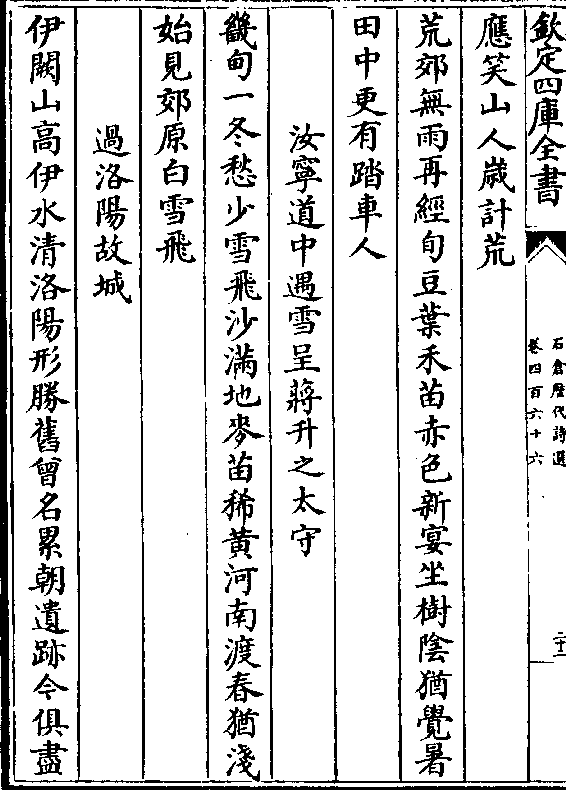 欽定四庫全書
石倉歴代詩選
卷四百六十六
二十二
應笑山人嵗計荒
荒郊無雨再經旬豆葉禾苗赤色新宴坐樹陰猶覺暑
田中更有踏車人
汝寧道中遇雪呈蔣升之太守
畿甸一冬愁少雪飛沙滿地麥苗稀黄河南渡春猶淺
始見郊原白雪飛
過洛陽故城
伊闕山高伊水清洛陽形勝舊曾名累朝遺跡今俱盡